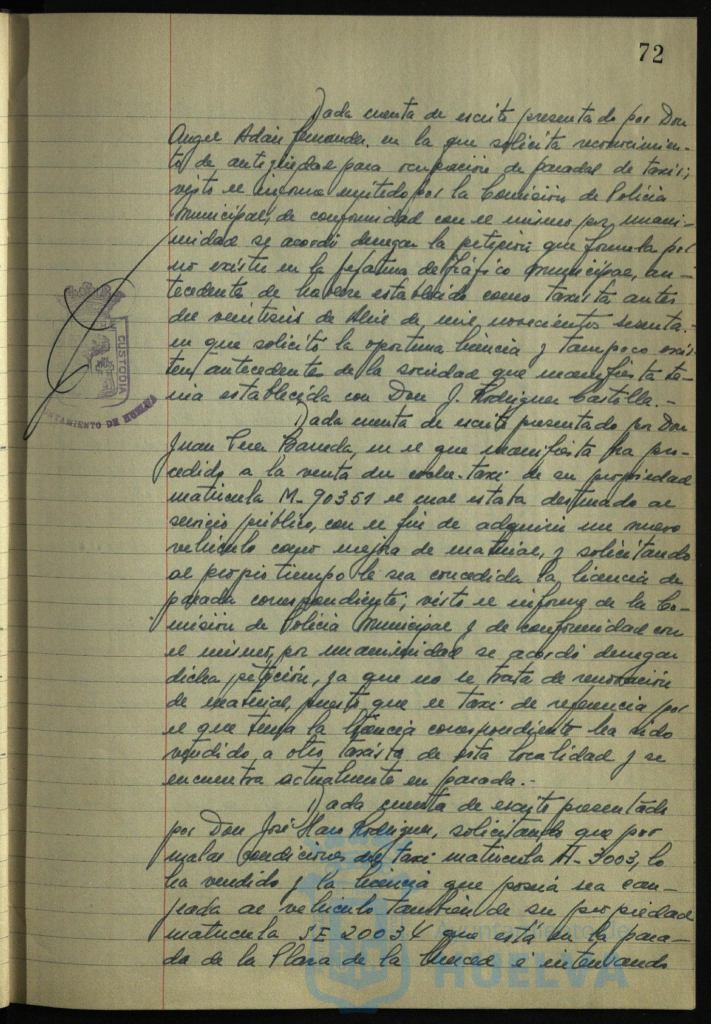 72
Dada cuenta de escrito presentado por Don
Angel Adán Fernandez, en la que solicita reconocimien-
to de antigüedad para ocupación de paradas de taxis;
visto el informe emitido por la Comisión de Policia
Municipal, de conformidad con el mismo por unani-
midad se acordó denegar la petición que formula por
no existir en la Jefatura de Tráfico Municipal, an-
tecedente de haberse establecido como taxista antes
del veintiseis de Abril de mil novecientos sesenta,-
en que solicitó la oportuna licencia y tampoco exis-
ten antecedentes de la sociedad que manifiesta te-
nia establecida con Don J. Rodriguez Castilla.-
Dada cuenta de escrito presentado por Don
Juan Perez Barreda, en el que manifiesta ha pro-
cedido a la venta del coche-taxi de su propiedad
matricula M-90351 el cual estaba destinado al
servicio público, con el fin de adquirir un nuevo
vehiculo como mejora de material, y solicitando
al propio tiempo le sea concedida la licencia de
parada correspondiente; visto el informe de la Co-
misión de Policia Municipal y de conformidad con
el mismo, por unanimidad se acordó denegar
dicha petición, ya que no se trata de renovación
de material, puesto que el taxi de referencia por
el que tenia la licencia correspondiente ha sido
vendido a otro taxista de esta localidad y se
encuentra actualmente en parada.-
Dada cuenta de escrito presentado
por Don José Haro Rodriguez, solicitando que por
malas condiciones del taxi matricula H-3003, lo
ha vendido y la licencia que poseia sea can-
jeada al vehiculo tambien de su propiedad
matricula SE 20034 que está en la para-
da de la Plaza de la Merced é intervando
CUSTODIA
AYUNTAMIENTO DE HUELVA
HUELVA